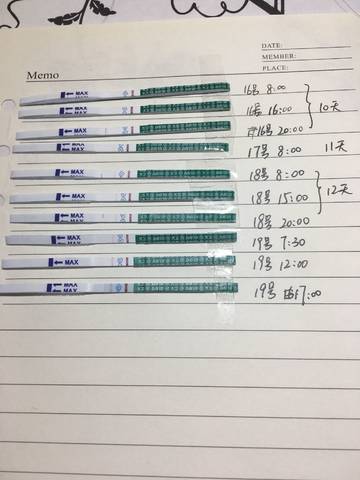 DATE:
MEMBER:
PLACE:
Memo
MAX 16号 8:00
MAX 16号 16:00
10天
MAX 16号 20:00
MAX 17号 8:00 11天
MAX 18号 8:00
MAX 18号 15:00
12天
MAX 18号 20:00
MAX 19号 7:30
MAX 19号 12:00
MAX 19号 7:00